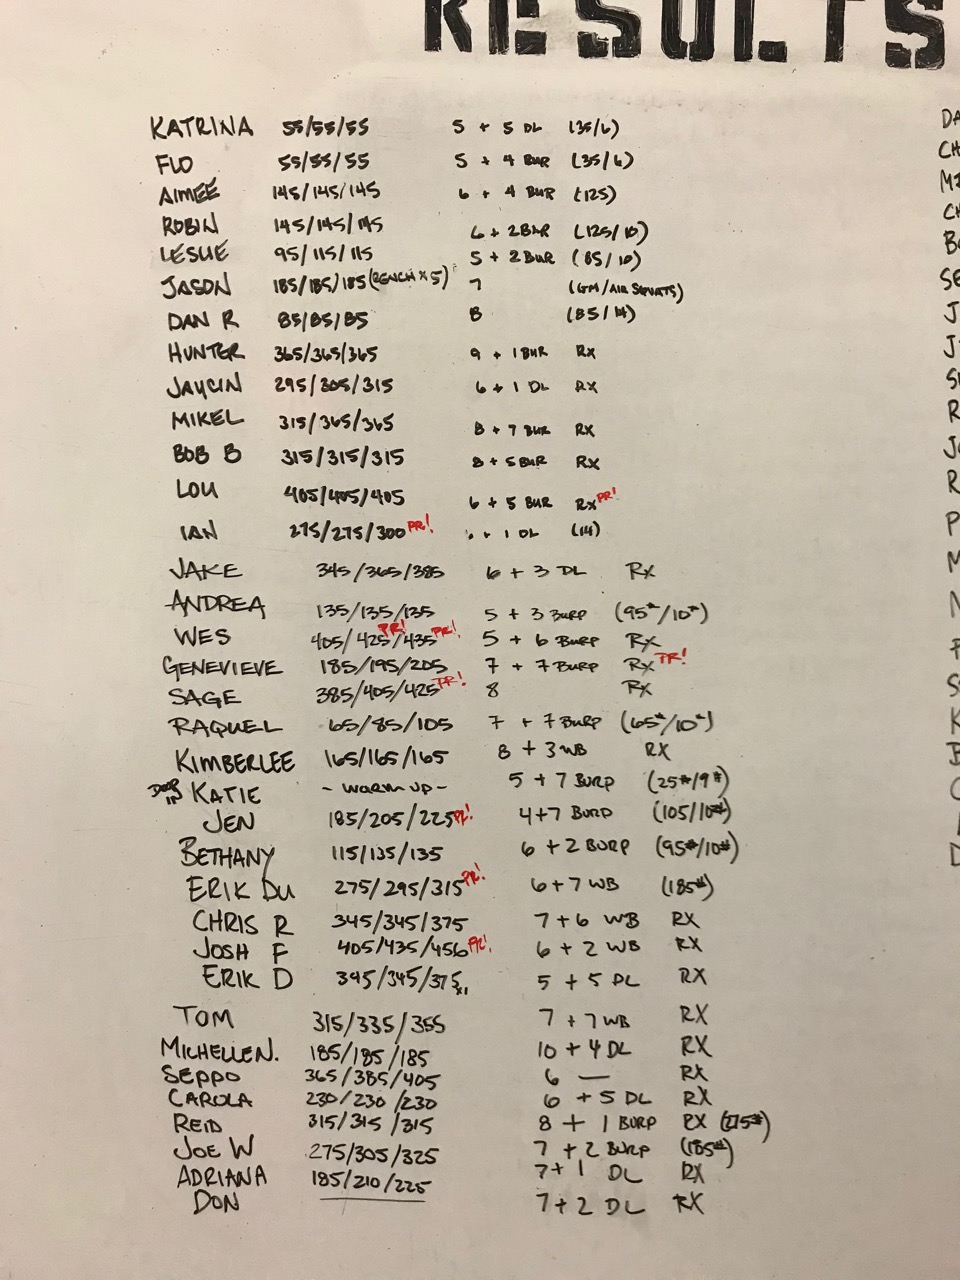 RESULTS
KATRINA 55/55/55 5 + 5 DL (35/6)
FLO 55/55/55 5 + 4 BUR (35/6)
AIMEE 145/145/145 6 + 4 BUR (125)
ROBIN 145/145/145 6 + 2 BUR (125/10)
LESLIE 95/115/115 5 + 2 BUR (85/10)
JASON 185/185/185 (BENCH x 5) 7 (GM/AIR SQUATS)
DAN R 85/85/85 8 (85/14)
HUNTER 365/365/365 9 + 1 BUR RX
JAYCIN 295/305/315 6 + 1 DL RX
MIKEL 315/365/365 8 + 7 BUR RX
BOB B 315/315/315 8 + 5 BUR RX
LOU 405/405/405 6 + 5 BUR RX PR!
IAN 275/275/300 PR! + 1 DL (14)
JAKE 345/365/385 6 + 3 DL RX
ANDREA 135/135/135 5 + 3 BURP (95#/10#)
WES 405/425 PR!/435 PR! 5 + 6 BURP RX
GENEVIEVE 185/195/205 7 + 7 BURP RX PR!
SAGE 385/405/425 PR! 8 RX
RAQUEL 65/85/105 7 + 7 BURP (65#/10#)
KIMBERLEE 165/165/165 8 + 3 WB RX
DROP IN KATIE - WARM UP - 5 + 7 BURP (25#/9#)
JEN 185/205/225 PR! 4+7 BURP (105/10#)
BETHANY 115/135/135 6 + 2 BURP (95#/10#)
ERIK DU 275/295/315 PR! 6+7 WB (185#)
CHRIS R 345/345/375 7+6 WB RX
JOSH F 405/435/456 PR! 6 + 2 WB RX
ERIK D 345/345/375 x1 5 + 5 DL RX
TOM 315/335/355 7 + 7 WB RX
MICHELLE N. 185/185/185 10 + 4 DL RX
SEPPO 365/385/405 6 — RX
CAROLA 230/230/230 6 + 5 DL RX
REID 315/315/315 8 + 1 BURP RX (275#)
JOE W 275/305/325 7 + 2 BURP (185#)
ADRIANA 185/210/225 7+1 DL RX
DON 7+2 DL RX